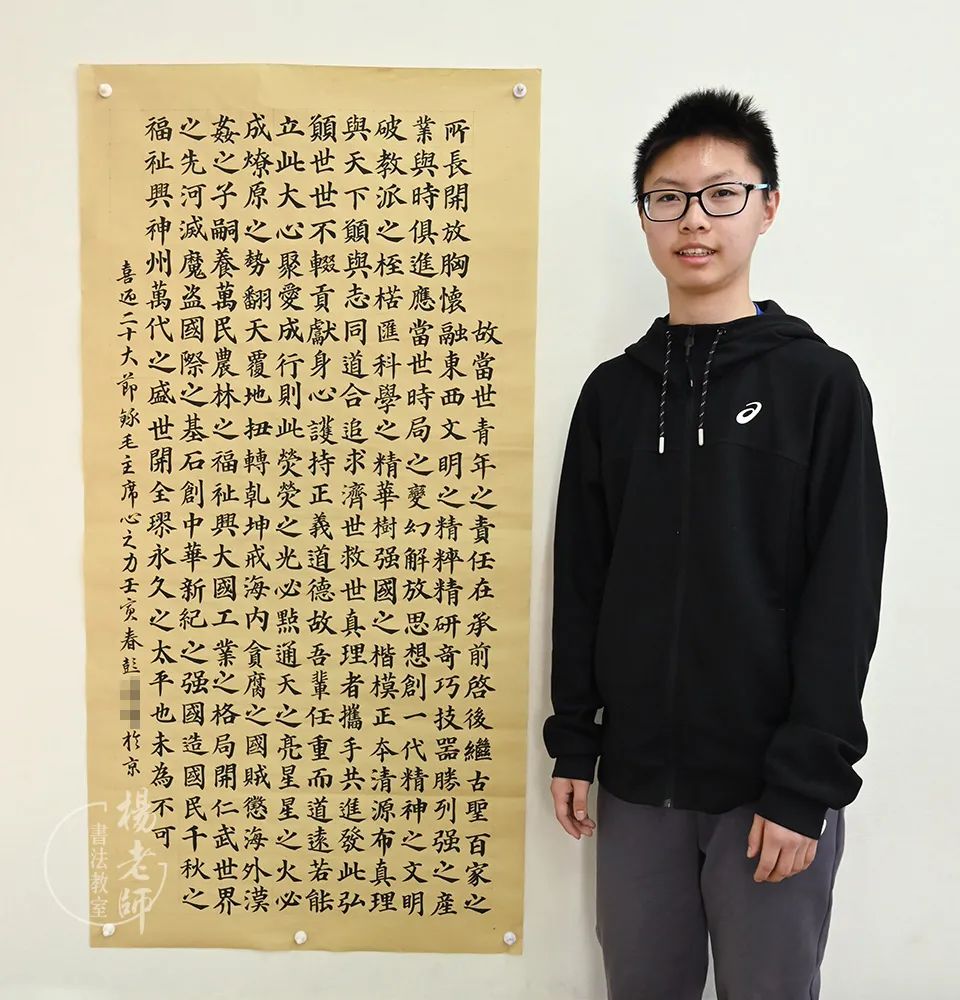 故當世青年之責任在承前啓後繼古聖百家之
所長開放胸懷融東西文明之精粹精研奇巧技器勝列强之產
業與時俱進應當世時局之變幻解放思想創一代精神之文明
破教派之桎梏匯科學之精華樹强國之楷模正本清源布真理
與天下願與志同道合追求濟世救世真理者攜手共進發此弘
願世世不輟貢獻身心護持正義道德故吾輩任重而道遠若能
立此大心聚愛成行則此熒熒之光必點通天之亮星星之火必
成燎原之勢翻天覆地扭轉乾坤戒海内貪腐之國賊懲海外漢
姦之子嗣養萬民農林之福祉興大國工業之格局開仁武世界
之先河滅魔盜國際之基石創中華新紀之强國造國民千秋之
福祉興神州萬代之盛世開全璆永久之太平也未為不可
喜迎二十大節錄毛主席心之力壬寅春彭於京
楊老師
書法教室